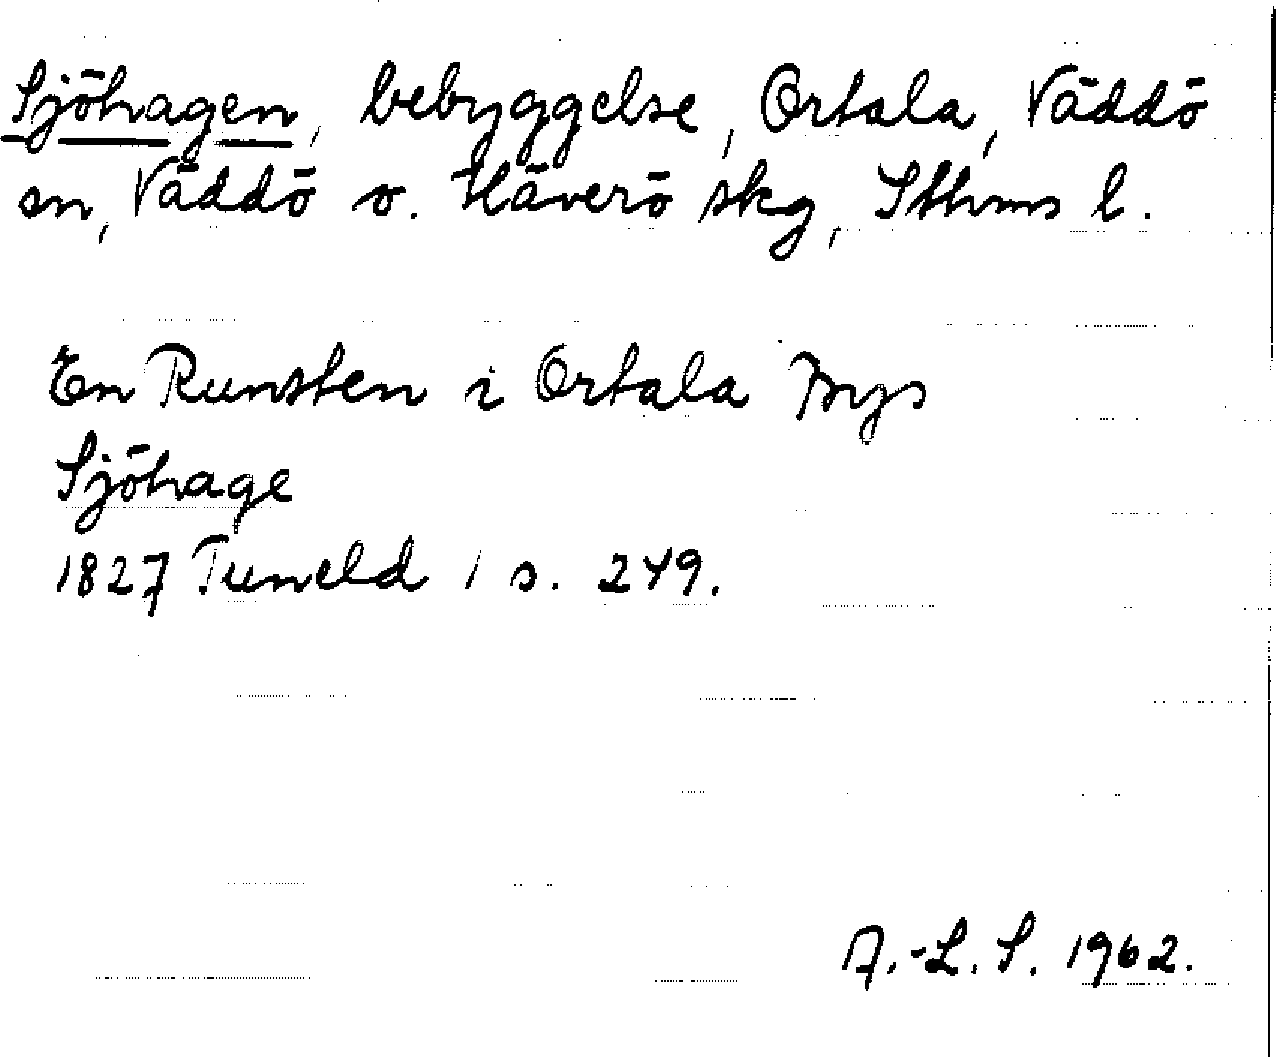 Sjöhagen, bebyggelse, Ortala, Väddö
sn, Väddö o. Häverö skg, Sthms l.
En Runsten i Ortala Bys
Sjöhage
1827 Tuneld 1 s. 249.
A.-L. S. 1962.